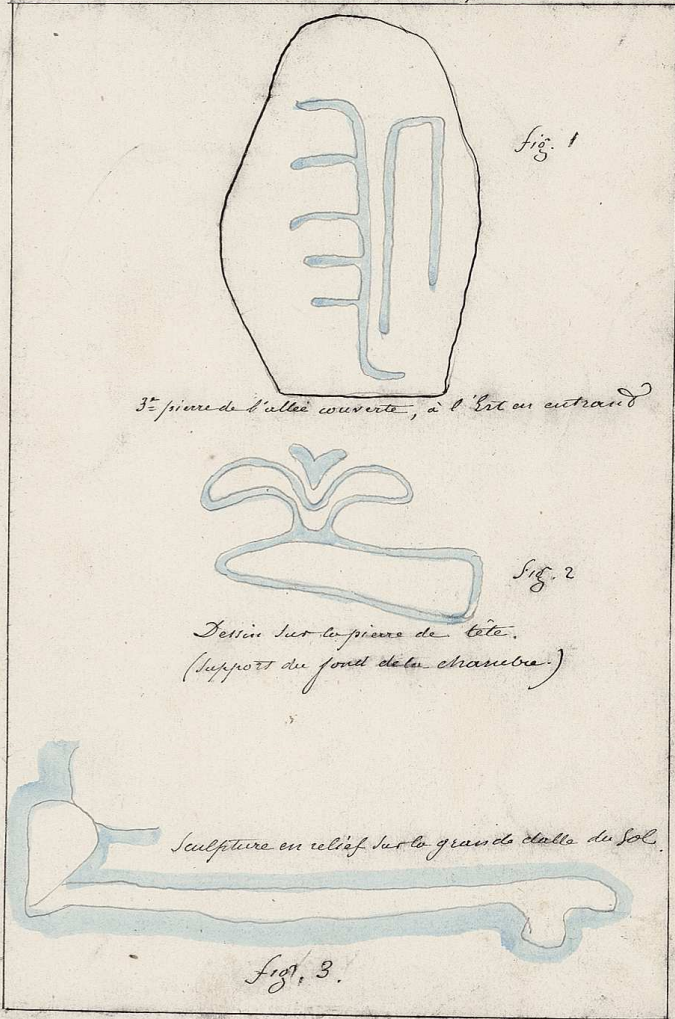 fig. 1
3e pierre de l'allée couverte, à l'Est en entrant
fig. 2
Dessin sur la pierre de tête.
(support du fond de la chambre.)
Sculpture en relief sur la grande dalle du sol.
fig. 3.